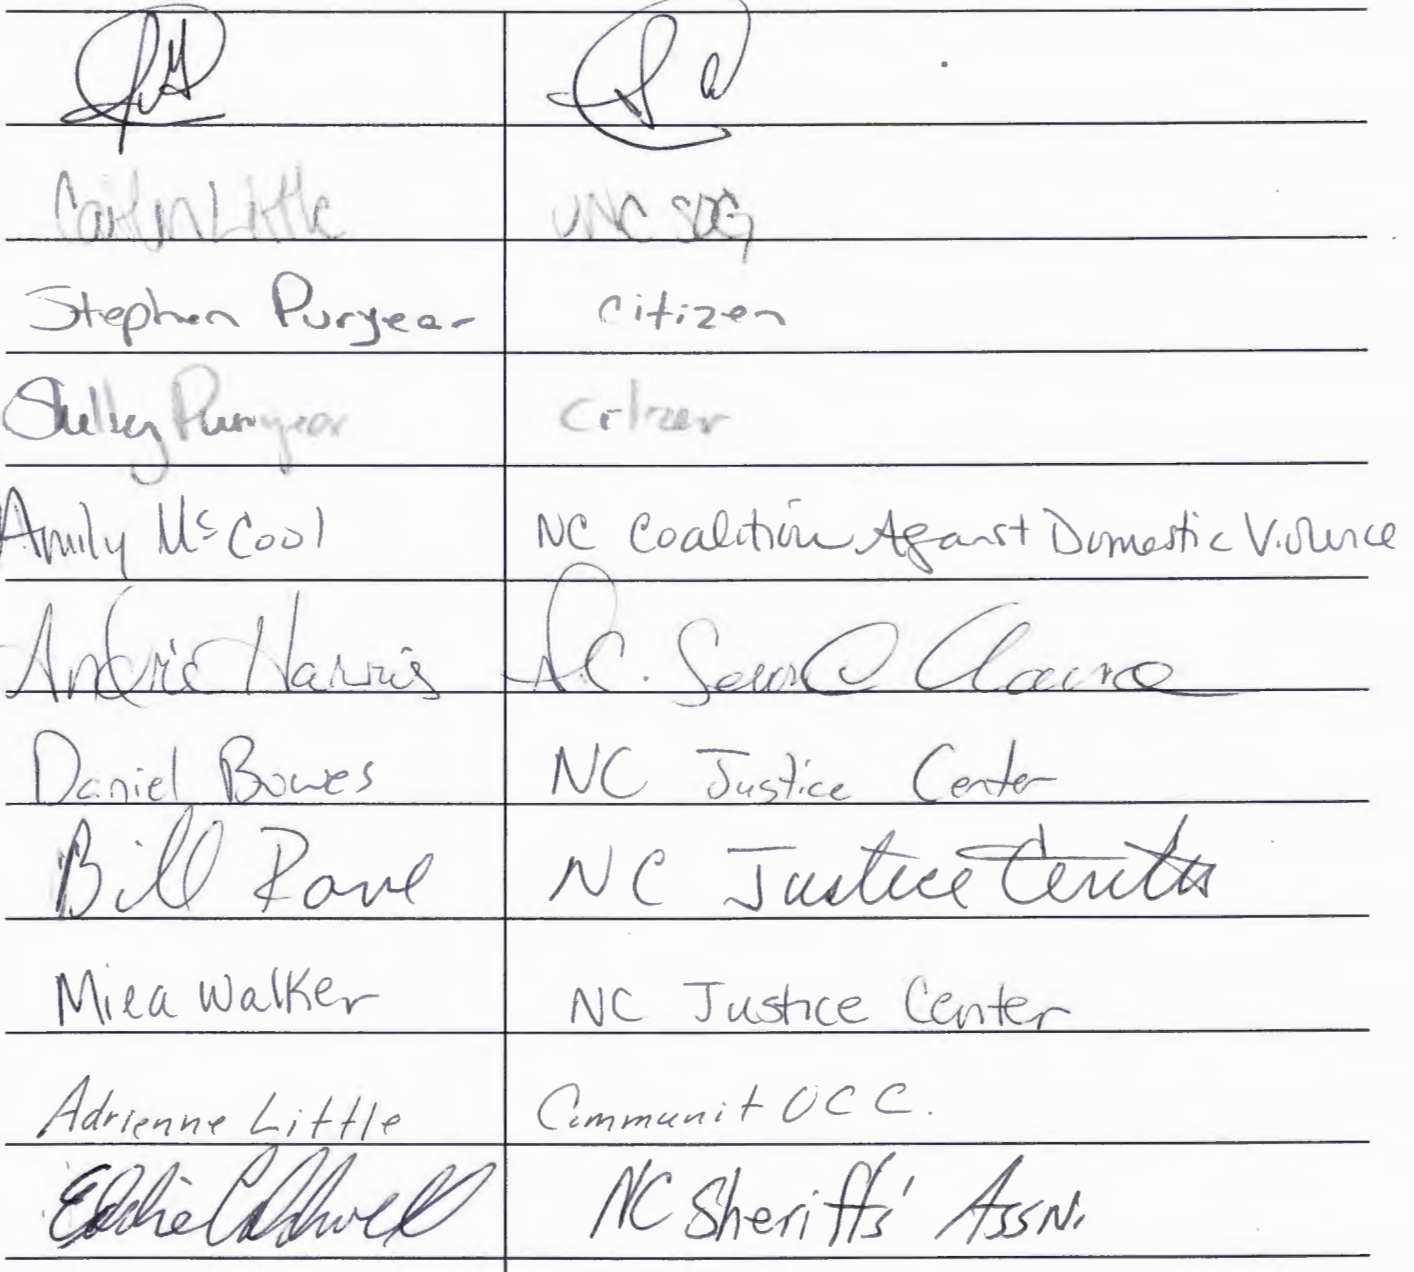 Caitlin Little UNC SOG
Stephen Puryear citizen
Shelley Puryear citizen
Amily McCool NC Coalition Against Domestic Violence
Harris N.C.
Daniel Bowes NC Justice Center
Bill Rowe NC Justice Center
Mica Walker NC Justice Center
Adrienne Little Communit UCC.
Eddie Caldwell NC Sheriffs' Assn.